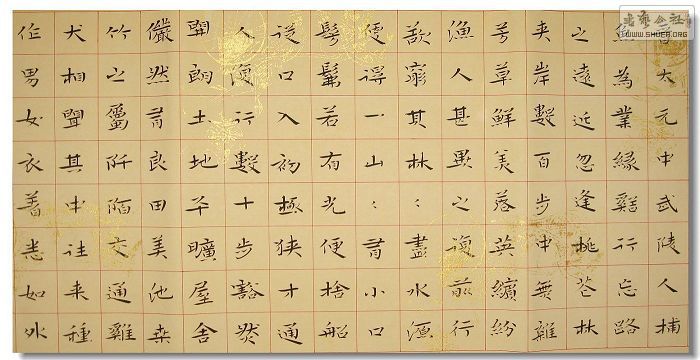 晉太元中武陵人捕
魚為業緣谿行忘路
之遠近忽逢桃花林
夾岸數百步中無雜
芳草鮮美落英繽紛
漁人甚異之復前行
欲窮其林〻盡水源
便得一山〻有小口
髣髴若有光便捨船
從口入初極狹才通
人復行數十步豁然
開朗土地平曠屋舍
儼然有良田美池桑
竹之屬阡陌交通雞
犬相聞其中往來種
作男女衣著悉如外
书艺公社